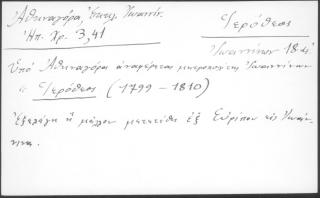 Ἀθηναγόρα, Ἐπισκ. Ἰωαννίν.
Ἠπ. Χρ. 3,41
Ἱερόθεος
Ἰωαννίνων 18
Ὑπὸ Ἀθηναγόρα ἀναφέρεται μητροπολίτης Ἰωαννίνων
ὁ Ἱερόθεος (1799 - 1810)
Ἐξελέγη ἢ μᾶλλον μετετέθη ἐξ Εὐρίπου εἰς Ἰωάν-
νινα.